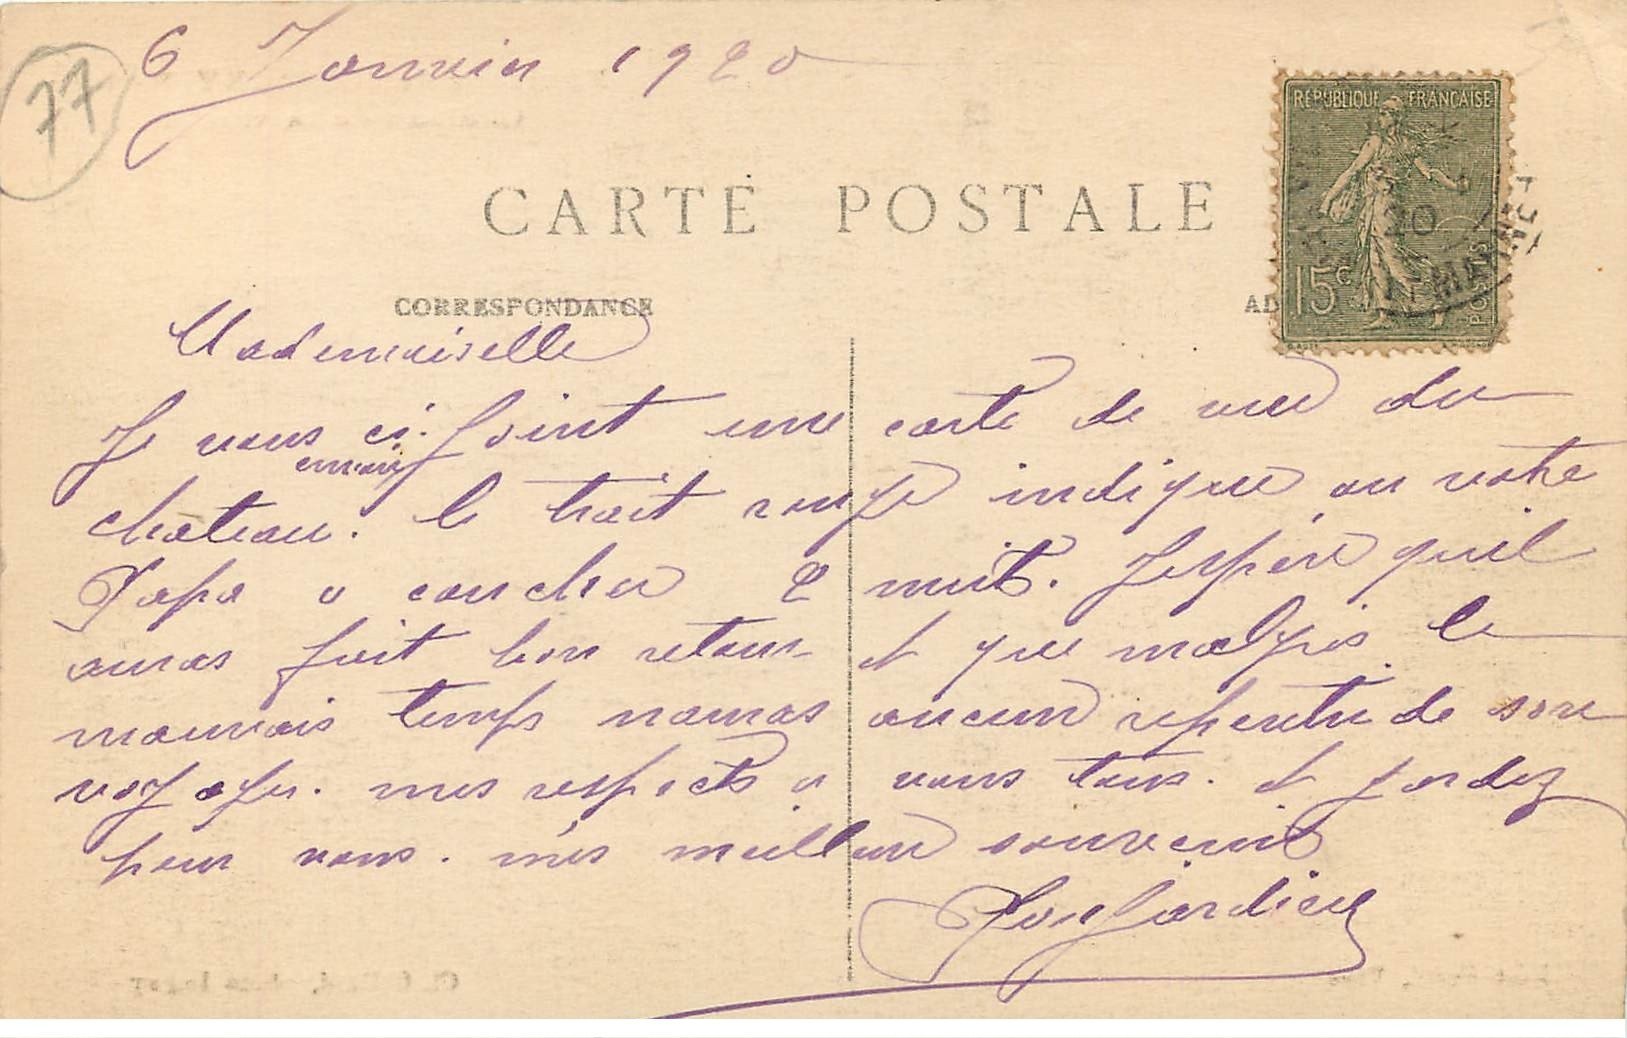 77
6 Janvier 1920
RÉPUBLIQUE FRANÇAISE
15c
POSTES
20
CARTE POSTALE
CORRESPONDANCE
AD
Mademoiselle
Je vous ci. Joint une carte de vue du
envoi
chateau. le trait rouge indique ou votre
Papa a coucher 2 nuit. J'espère quil
auras fait bon retour et que malgrès le
mauvais temps nauras aucun repentir de son
voyage. mes respects a vous tous. et gardez
pour vous. mes meilleur souvenir